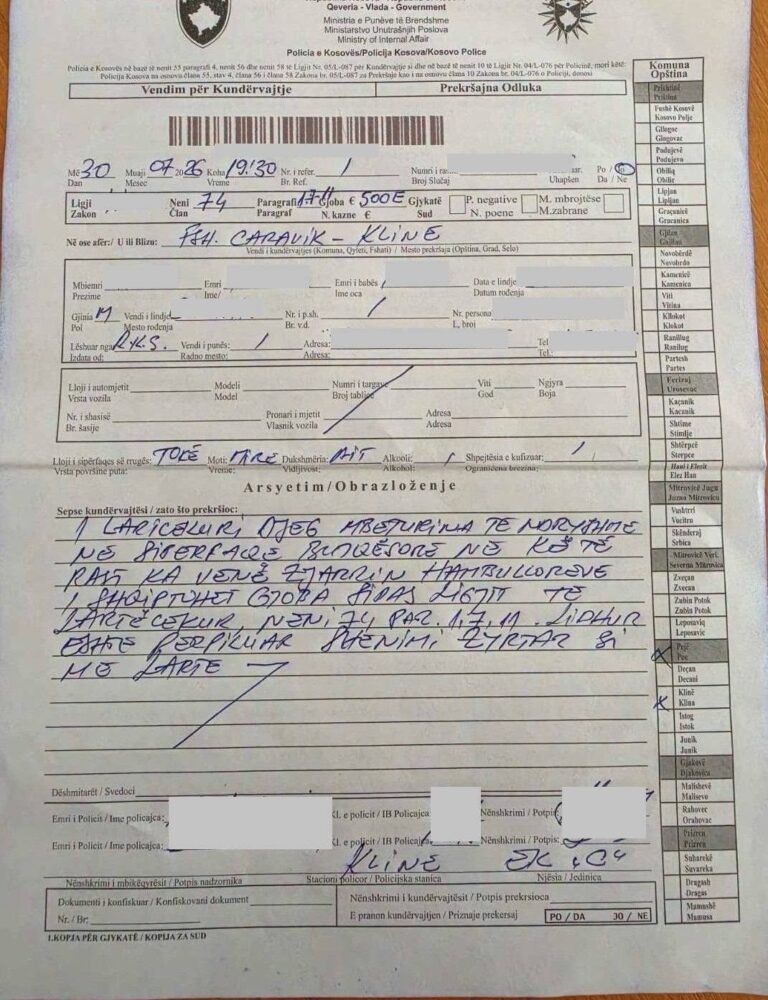 Qeveria - Vlada - Government
Ministria e Punëve të Brendshme
Ministarstvo Unutrašnjih Poslova
Ministry of Internal Affair
Policia e Kosovës/Policija Kosova/Kosovo Police
Policia e Kosovës në bazë të nenit 55 paragrafi 4, nenit 56 dhe nenit 58 të Ligjit Nr. 05/L-087 për Kundërvajtje si dhe në bazë të nenit 10 të Ligjit Nr. 04/L-076 për Policinë, mori këtë:
Policija Kosova na osnovu člana 55, stav 4, člana 56 i člana 58 Zakona br. 05/L-087 za Prekršaje kao i na osnovu člana 10 Zakona br. 04/L-076 o Policiji, donosi
Vendim për Kundërvajtje Prekršajna Odluka
Më 30 Muaji 07 2026 Koha 19:30 Nr. i refer. / Numri i Po / Jo
Dan Mesec Vreme Br. Ref. Broj Slučaj Uhapšen Da / Ne
Ligji Neni 74 Paragrafi Gjoba € 500E Gjykatë P. negative M. mbrojtëse
Zakon Član Paragraf N. kazne € Sud N. poene M.zabrane
Në ose afër:/ U ili Blizu: FSH. CARAVIK - KLINË
Vendi i kundërvajtjes (Komuna, Qyteti, Fshati) / Mesto prekršaja (Opština, Grad, Selo)
Mbiemri Emri Emri i babës Data e lindje
Prezime Ime/ Ime oca Datum rođenja
Gjinia M Vendi i lindje Nr. i p.sh. / Nr. persona
Pol Mesto rođenja Br. v.d. L, broj
Lëshuar nga R.K.S. Vendi i punës: / Adresa: Tel
Izdata od: Radno mesto: Adresa: Tel.:
Lloji i automjetit Modeli Numri i targave Viti Ngjyra
Vrsta vozila Model Broj tablice God Boja
Nr. i shasisë Pronari i mjetit Adresa
Br. šasije Vlasnik vozila Adresa
Lloji i sipërfaqes së rrugës: TOKË Moti: MIRE Dukshmëria: DIT Alkooli: / Shpejtësia e kufizuar: /
Vrsta površine puta: Vreme: Vidljivost: Alkohol: Ograničena brzina:
Arsyetim/Obrazloženje
Sepse kundërvajtësi / zato što prekršioc:
I LARTCEKURI DJEG MBETURINA TE NDRYSHME
NË SIPERFAQE BUJQËSORE NË KËTË
RAST KA VENË ZJARRIN HAMBULLOREVE
I SHQIPTOHET GJOBA SIPAS LIGJIT TË
LARTËCEKUR, NENI 74 PAR. 1,7,11. LIDHUR
ESHTE PERPILUAR SHENIMI ZYRTAR SI
ME LARTE
Dëshmitarët / Svedoci
Emri i Policit / Ime policajca: I. e policit / IB Policajca Nënshkrimi / Potpis
Emri i Policit / Ime policajca: I. e policit / IB Policajca Nënshkrimi / Potpis:
KLINË
Nënshkrimi i mbikëqyrësit / Potpis nadzornika Stacioni policor / Policijska stanica Njësia / Jedinica
Dokumenti i konfiskuar / Konfiskovani dokument Nënshkrimi i kundërvajtësit / Potpis prekrsioca
Nr. / Br: E pranon kundërvajtjen / Priznaje prekersaj PO / DA JO / NE
1.KOPJA PËR GJYKATË / KOPIJA ZA SUD
Komuna
Opština
Prishtinë
Priština
Fushë Kosovë
Kosovo Polje
Gllogoc
Glogovac
Podujevë
Podujevo
Obiliq
Obilić
Lipjan
Lipljan
Graçanicë
Gracanica
Gjilan
Gnjilane
Novobërdë
Novobrdo
Kamenicë
Kamenica
Viti
Vitina
Kllokot
Klokot
Ranillug
Ranilug
Partesh
Partes
Ferizaj
Urosevac
Kaçanik
Kacanik
Shtime
Stimlje
Shtërpcë
Sterpce
Hani i Elezit
Elez Han
Mitrovicë Jugu
Juzna Mitrovica
Vushtrri
Vucitrn
Skënderaj
Srbica
Mitrovicë Veri
Severna Mitrovica
Zveçan
Zvecan
Zubin Potok
Zubin Potok
Leposaviq
Leposavic
Pejë
Pec
Deçan
Decani
Klinë
Klina
Istog
Istok
Junik
Junik
Gjakovë
Djakovica
Malishevë
Malisevo
Rahovec
Orahovac
Prizren
Prizren
Suharekë
Suvareka
Dragash
Dragas
Mamushë
Mamusa